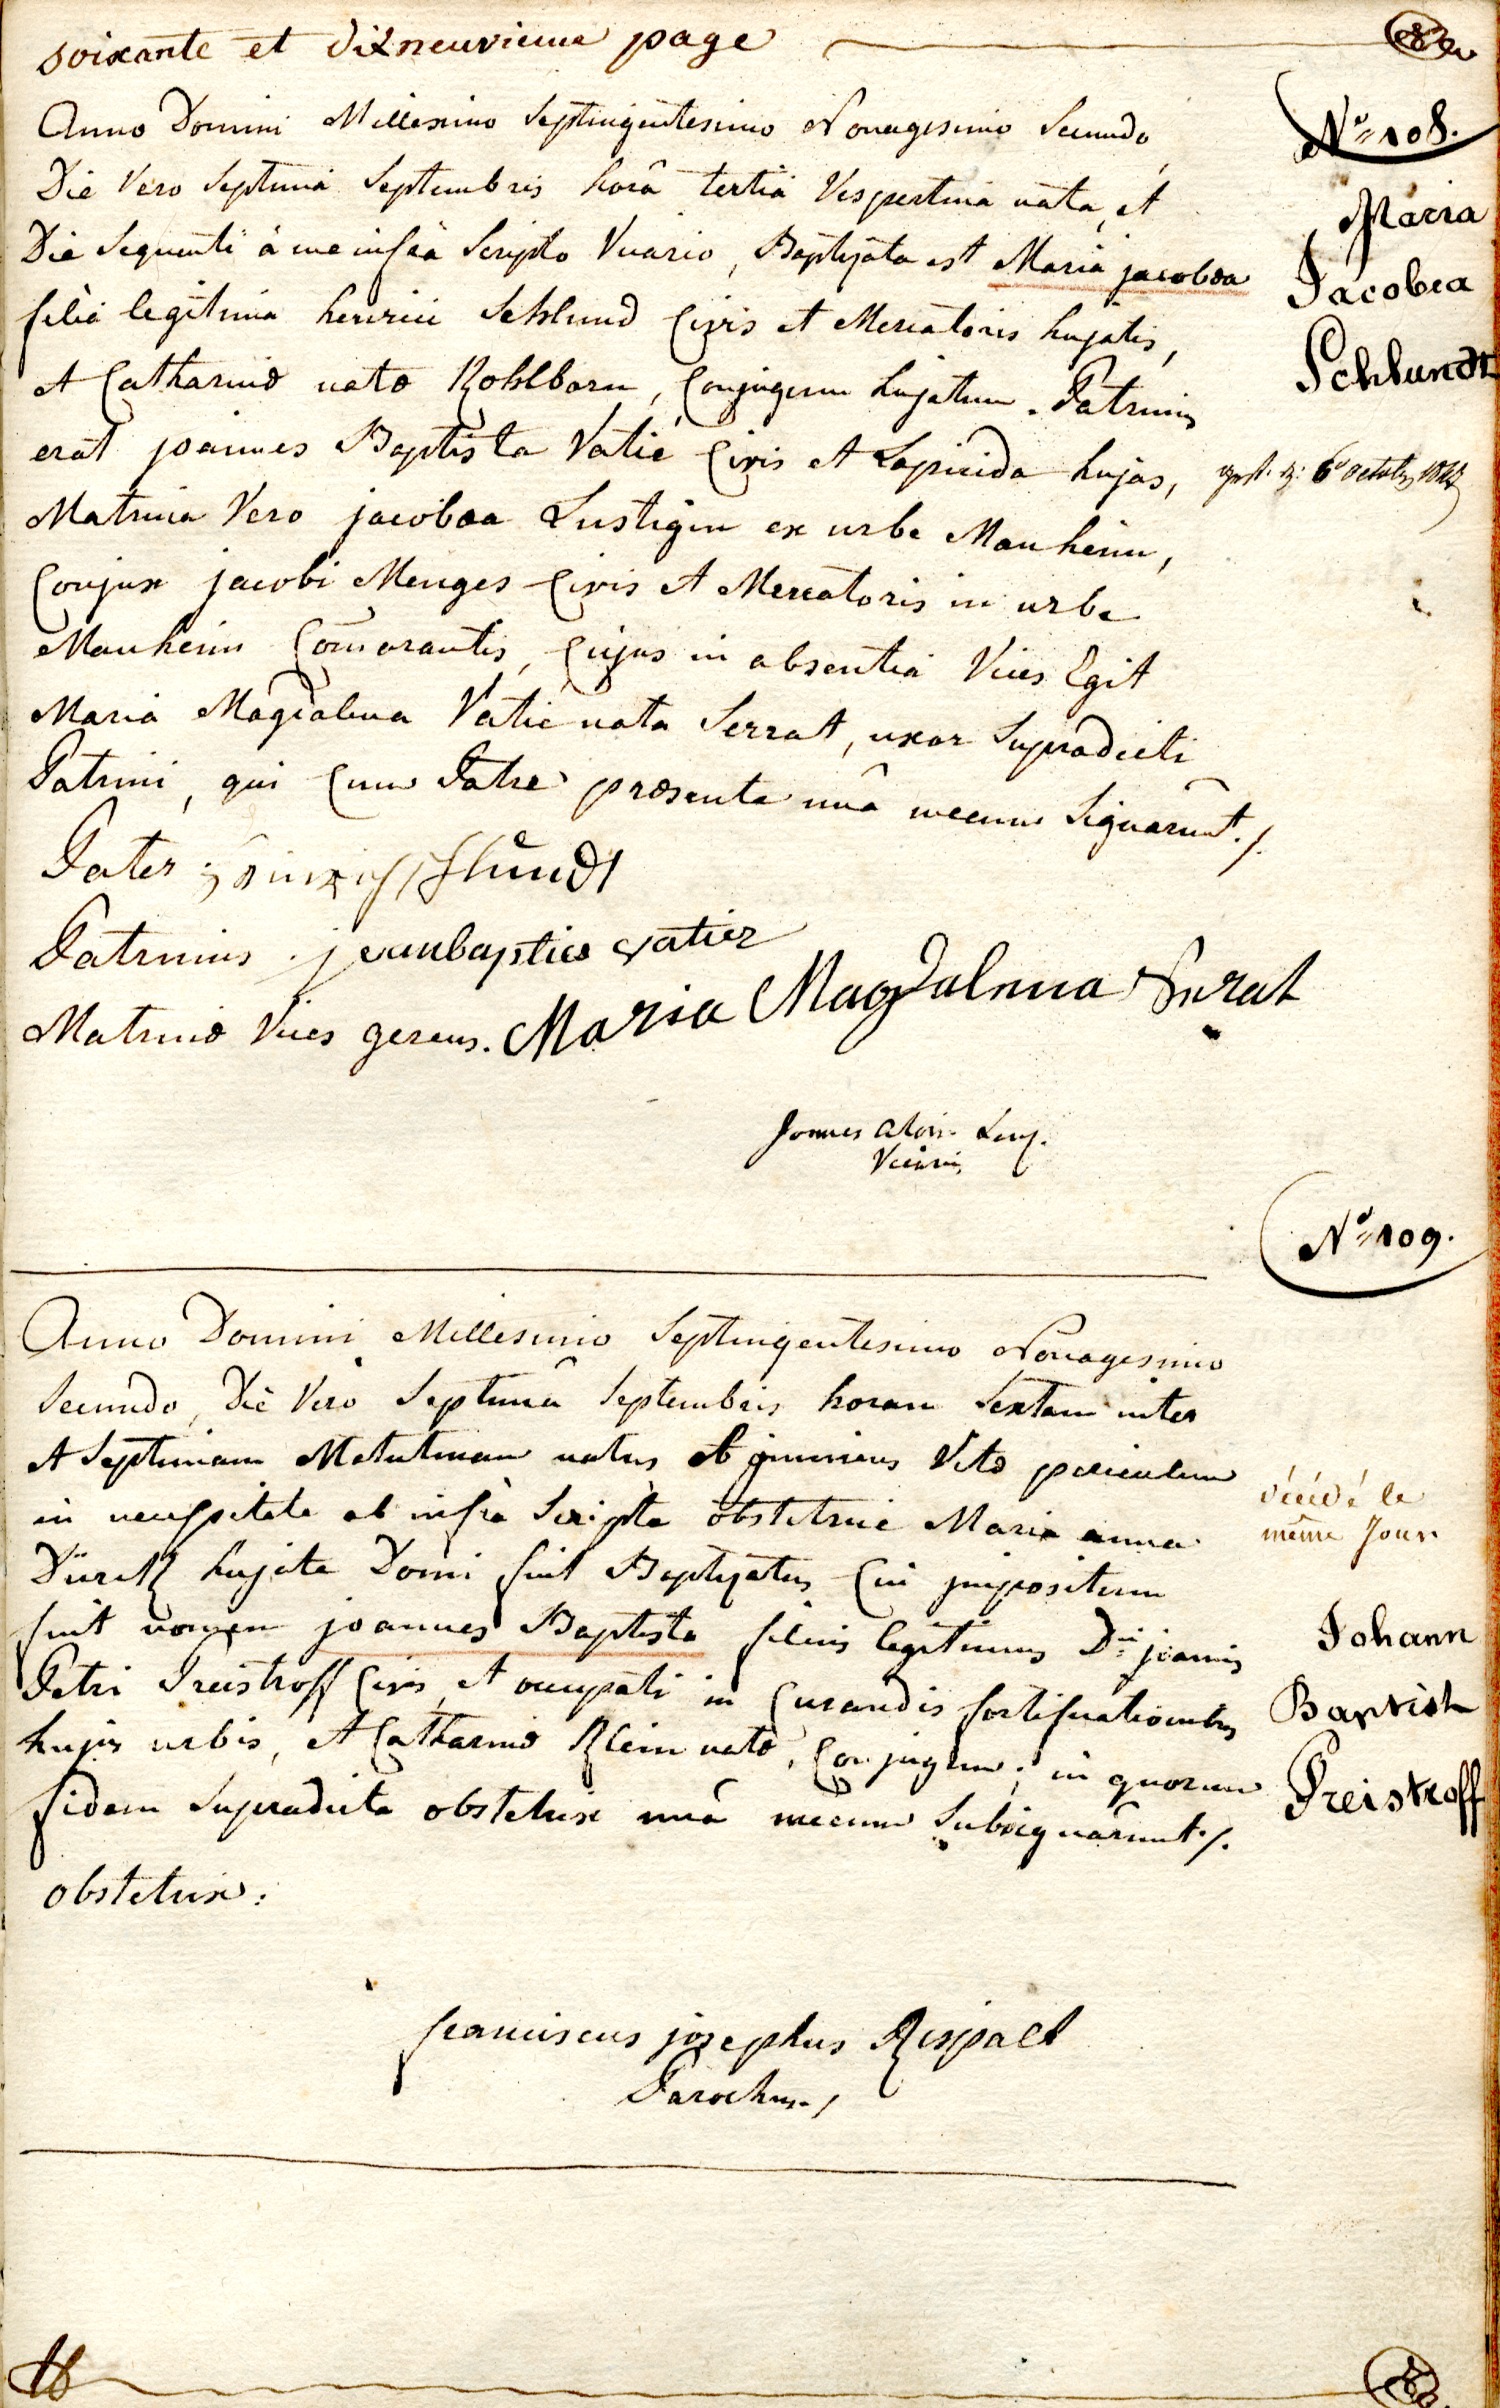 soixante et dixneuvieme page
Anno Domini Millesimo Septingentesimo Nonagesimo Secundo,
Die Vero Septimâ Septembris horâ tertiâ Vespertinâ nata, et
Die Sequenti à me infrà Scripto Vicario, Baptizata est Maria jacobæa
filia legitima henrici Schlund Civis et Mercatoris hujatis,
et Catharinæ natæ Kohlborn, Conjugum hujatum. Patrinus
erat joannes Baptista Vatié Civis et Lapicida hujas,
Matrina Vero jacobæa Lustigin ex urbe Manheim,
Conjux jacobi Menges Civis et Mercatoris in urbe
Manheim Com̄orantis, Cujus in absentiâ Vices Egit
Maria Magdalena Vatié nata Serrat, uxor Supradicti
Patrini, qui Cum Patre præsente unâ mecum Signarunt./.
Pater Heinrich Schlundt
Patrinus. jeanbapties vatier
Matrinæ Vices gerens. Maria Magdalena Serat
Joannes Alois.
Vicarius
No 108.
Maria
Jacobea
Schlundt
6 octobr
No 109.
Anno Domini Millesimo Septingentesimo Nonagesimo
Secundo, Die Vero Septimâ Septembris horam Sextam inter
et Septimam Matutinam natus et ob jminens Vitæ periculum
in necessitate ab infrà Scripta obstetrice Maria anna
Dürck hujate Domi fuit Baptizatus Cui jmpositum
fuit nomen joannes Baptista filius legitimus D:ni joannis
Petri Freistroff Civis, et occupati in Curandis fortificationibus
hujus urbis, et Catharinæ Klein natæ, Conjugum; in quorum
fidem Supradicta obstetrix unâ mecum Subsignarunt./.
obstetrix:
franciscus josephus Rispalt
Parochus./
décédé le
même Jour
Johann
Baptist
Freistroff